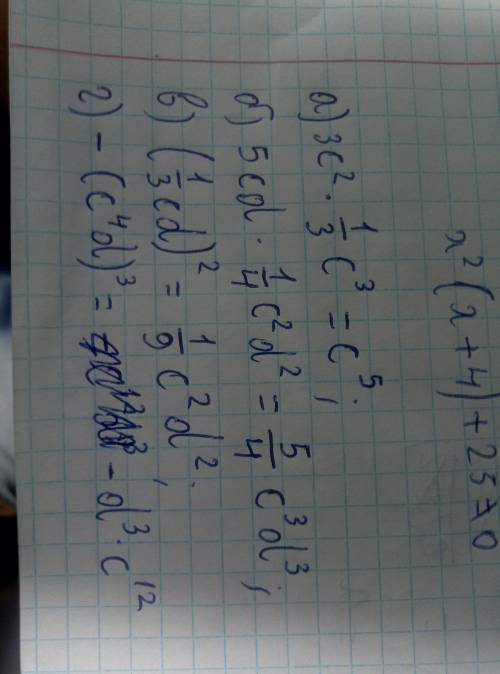 x² (x + 4) + 25 = 0
а) 3c² · 1/3 c³ = c⁵;
б) 5cd · 1/4 c²d² = 5/4 c³d³;
в) (1/3 cd)² = 1/9 c²d²;
г) - (c⁴d)³ = - d³ · c¹²